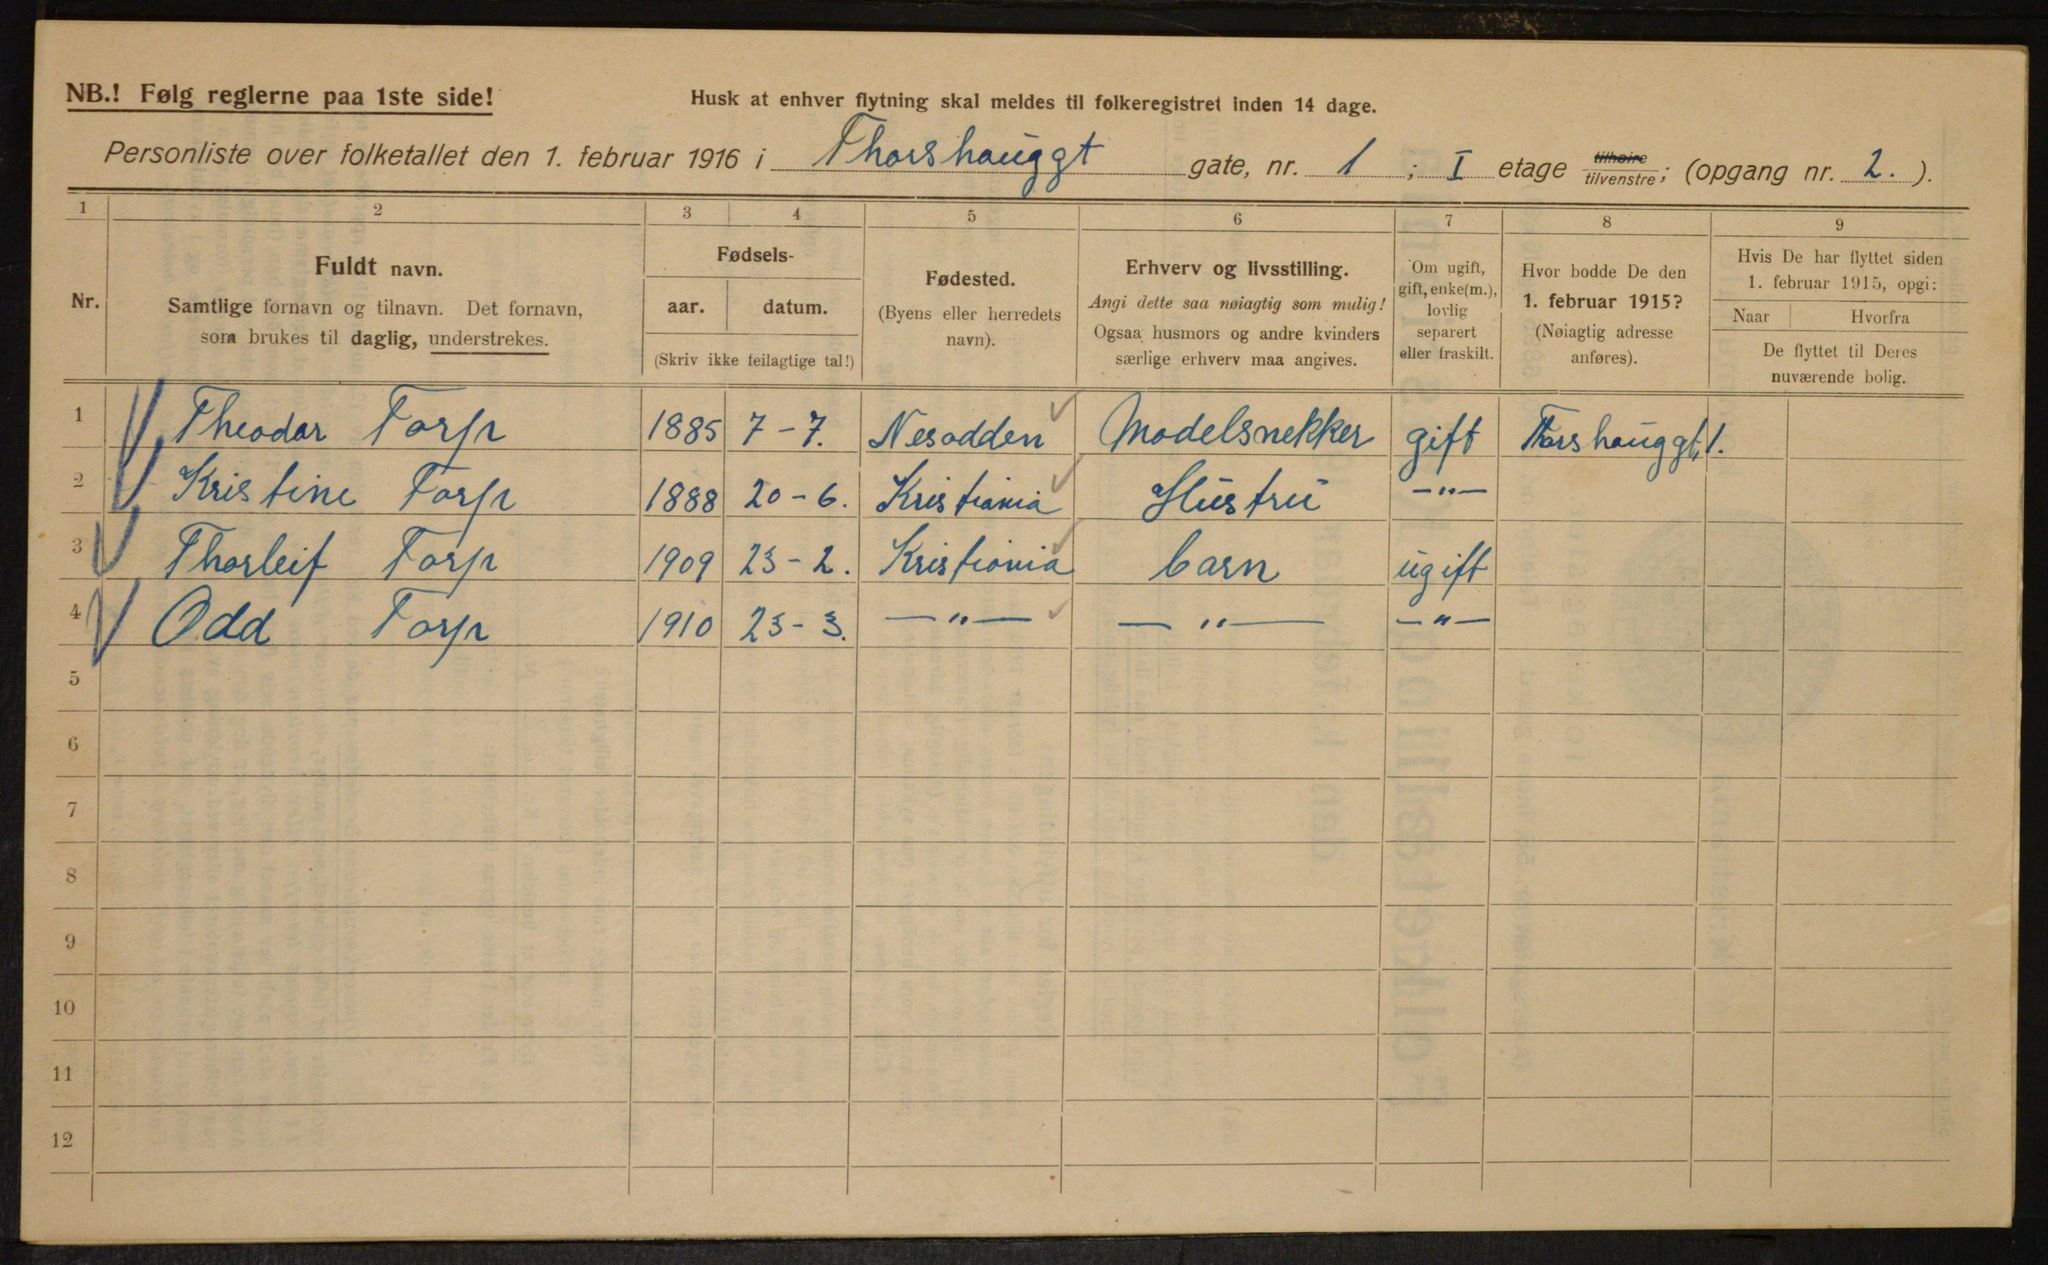 NB.! Følg reglerne paa 1ste side!
Husk at enhver flytning skal meldes til folkeregistret inden 14 dage.
Personliste over folketallet den 1. februar 1916 i Thorshauggt gate, nr. 1 ; I etage tilhøire tilvenstre; (opgang nr. 2. ).
1 2 3 4 5 6 7 8 9
Nr.
Fuldt navn.
Samtlige fornavn og tilnavn. Det fornavn,
som brukes til daglig, understrekes.
Fødsels-
aar. datum.
(Skriv ikke feilagtige tal!)
Fødested.
(Byens eller herredets
navn).
Erhverv og livsstilling.
Angi dette saa nøiagtig som mulig!
Ogsaa husmors og andre kvinders
særlige erhverv maa angives.
Om ugift,
gift, enke(m.),
lovlig
separert
eller fraskilt.
Hvor bodde De den
1. februar 1915?
(Nøiagtig adresse
anføres).
Hvis De har flyttet siden
1. februar 1915, opgi:
Naar Hvorfra
De flyttet til Deres
nuværende bolig.
1 Theodor Torp 1885 7-7. Nesodden Modelsnekker gift Thorshauggt, 1.
2 Kristine Torp 1888 20-6. Kristiania Hustru —"—
3 Thorleif Torp 1909 23-2. Kristiania barn ugift
4 Odd Torp 1910 23-3. —"— —"— —"—
5
6
7
8
9
10
11
12